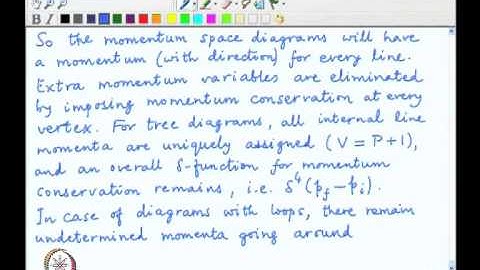 So the momentum space diagrams will have
a momentum (with direction) for every line.
Extra momentum variables are eliminated
by imposing momentum conservation at every
vertex. For tree diagrams, all internal line
momenta are uniquely assigned (V = P+1),
and an overall δ-function for momentum
conservation remains, i.e. δ⁴(p_f - p_i).
In case of diagrams with loops, there remain
undetermined momenta going around